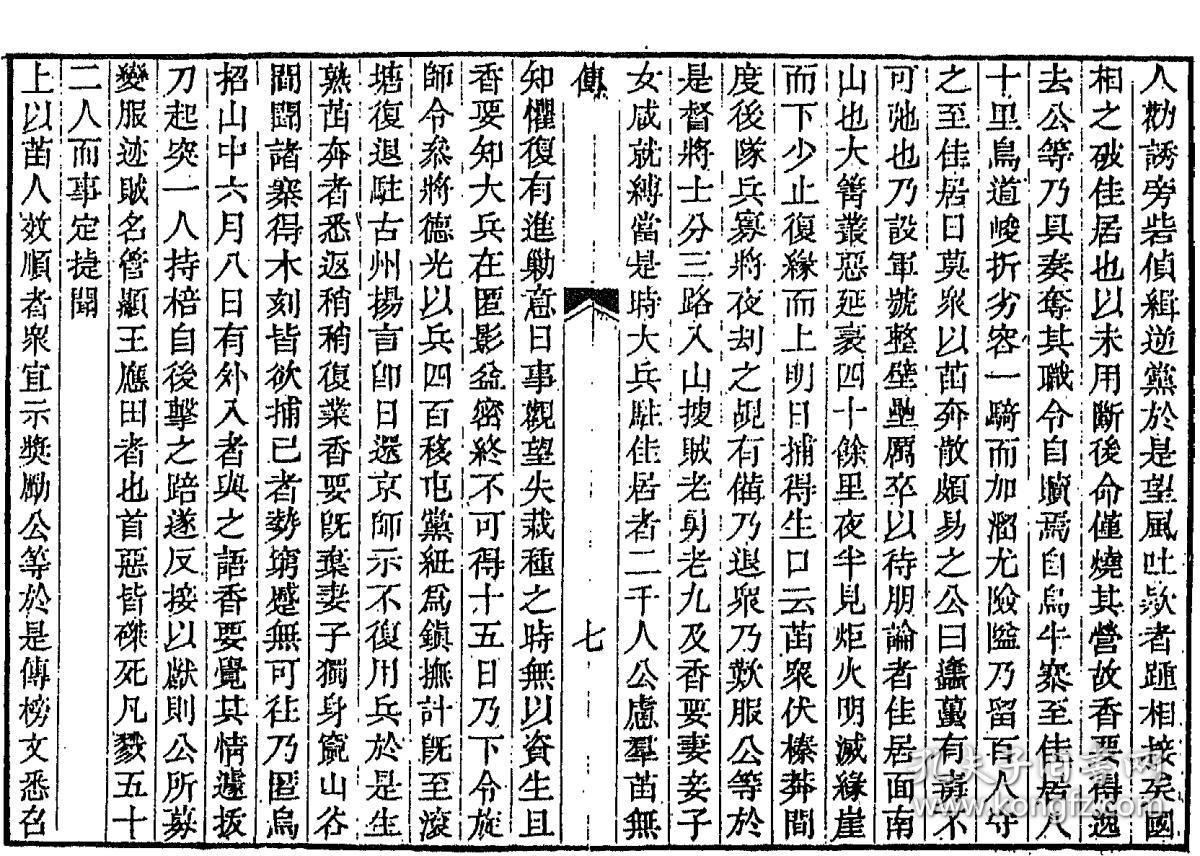 人勸誘旁砦偵緝逆黨於是望風吐欵者踵相接矣國
相之破佳居也以未用斷後命僅燒其營故香要得逸
去公等乃具奏奪其職令自贖焉自烏牛寨至佳居八
十里鳥道峻折劣容一騎而加溜尤險隘乃留百人守
之至佳居日莫衆以苗奔散頗易之公曰蠭蠆有毒不
可弛也乃設軍號整壁壘厲卒以待朋論者佳居面南
山也大箐叢惡延袤四十餘里夜半見炬火明滅緣崖
而下少止復緣而上明日捕得生口云苗衆伏榛莽間
度後隊兵寡將夜刦之覘有備乃退衆乃歎服公等於
是督將士分三路入山搜賊老剪老九及香要妻妾子
女咸就縛當是時大兵駐佳居者二千人公慮羣苗無
傳 七
知懼復有進勦意曰事觀望失栽種之時無以資生且
香要知大兵在匿影益密終不可得十五日乃下令旋
師令叅將德光以兵四百移屯黨紐爲鎭撫計旣至滾
塘復退駐古州揚言卽日還京師示不復用兵於是生
熟苗奔者悉返稍稍復業香要旣棄妻子獨身竄山谷
間聞諸寨得木刻皆欲捕已者勢窮蹙無可往乃匿烏
招山中六月八日有外入者與之語香要覺其情遽拔
刀起突一人持棓自後擊之踣遂反接以獻則公所募
變服迹賊名管顯王應田者也首惡皆磔死凡戮五十
二人而事定捷聞
上以苗人效順者衆宜示獎勵公等於是傳榜文悉召
孔夫子旧书网
www.kongfz.com